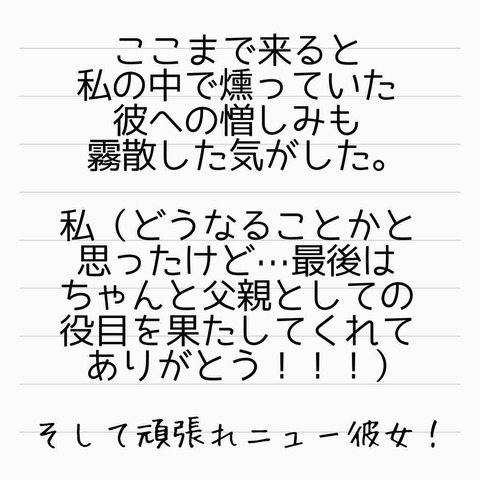 ここまで来ると
私の中で燻っていた
彼への憎しみも
霧散した気がした。
私（どうなることかと
思ったけど…最後は
ちゃんと父親としての
役目を果たしてくれて
ありがとう！！！）
そして頑張れニュー彼女！